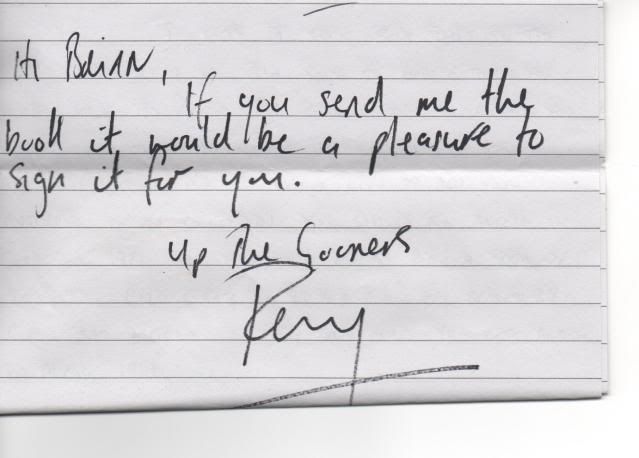 Hi Brian,
If you send me the
book it would be a pleasure to
sign it for you.
Up The Gooners
Perry